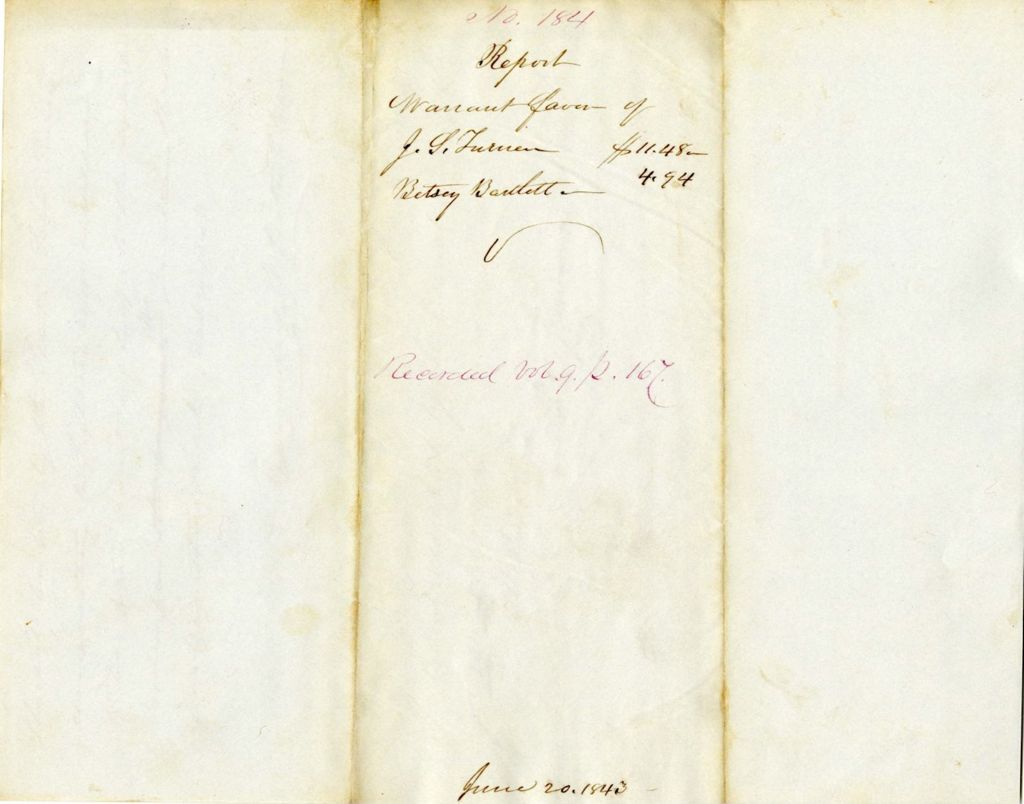 No. 184
Report
Warrant favor of
J. S. Turner $11.48
Betsey Bartlett 4.94
Recorded Vol. 9. p. 167.
June 20. 1843